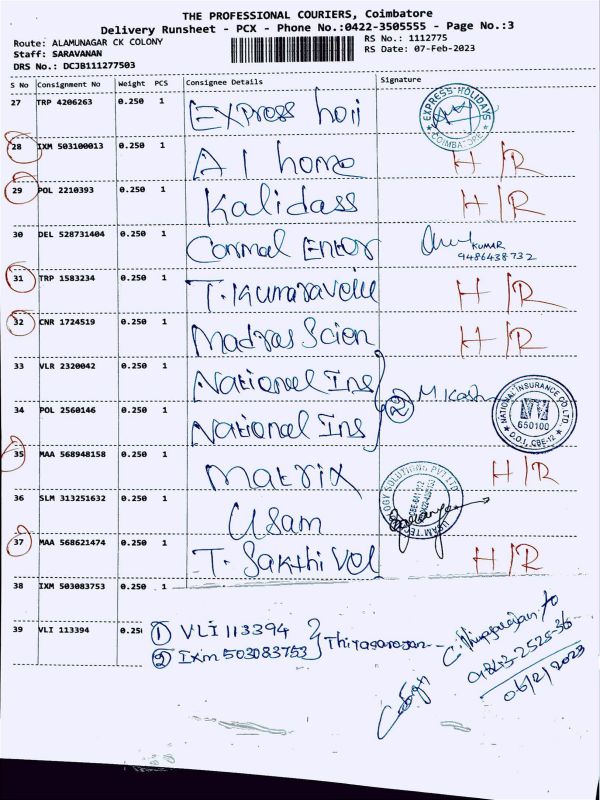 THE PROFESSIONAL COURIERS, Coimbatore
Delivery Runsheet - PCX - Phone No.:0422-3505555 - Page No.:3
Route: ALAMUNAGAR CK COLONY
RS No.: 1112775
Staff: SARAVANAN
RS Date: 07-Feb-2023
DRS No.: DCJB111277503
S No Consignment No Weight PCS Consignee Details Signature
27 TRP 4206263 0.250 1 Express holi
EXPRESS HOLIDAYS COIMBATORE
28 IXM 503100013 0.250 1 A1 home H/R
29 POL 2210393 0.250 1 Kalidass H/R
30 DEL 528731404 0.250 1 Conmal Enter KUMAR
9486438732
31 TRP 1583234 0.250 1 T. Kumaravelu H/R
32 CNR 1724519 0.250 1 Madras Scien H/R
33 VLR 2320042 0.250 1 National Ins
2 M Kash
NATIONAL INSURANCE CO LTD 650100 D.O.I, CBE-12
34 POL 2560146 0.250 1 National Ins
35 MAA 568948158 0.250 1 Matrix H/R
36 SLM 313251632 0.250 1 Usam
37 MAA 568621474 0.250 1 T. Sakthivel H/R
38 IXM 503083753 0.250 1
39 VLI 113394 0.250 1 VLI 113394
2 Ixm 503083753 Thiyagarajan
C. Thiyagarajan
06/2/2023